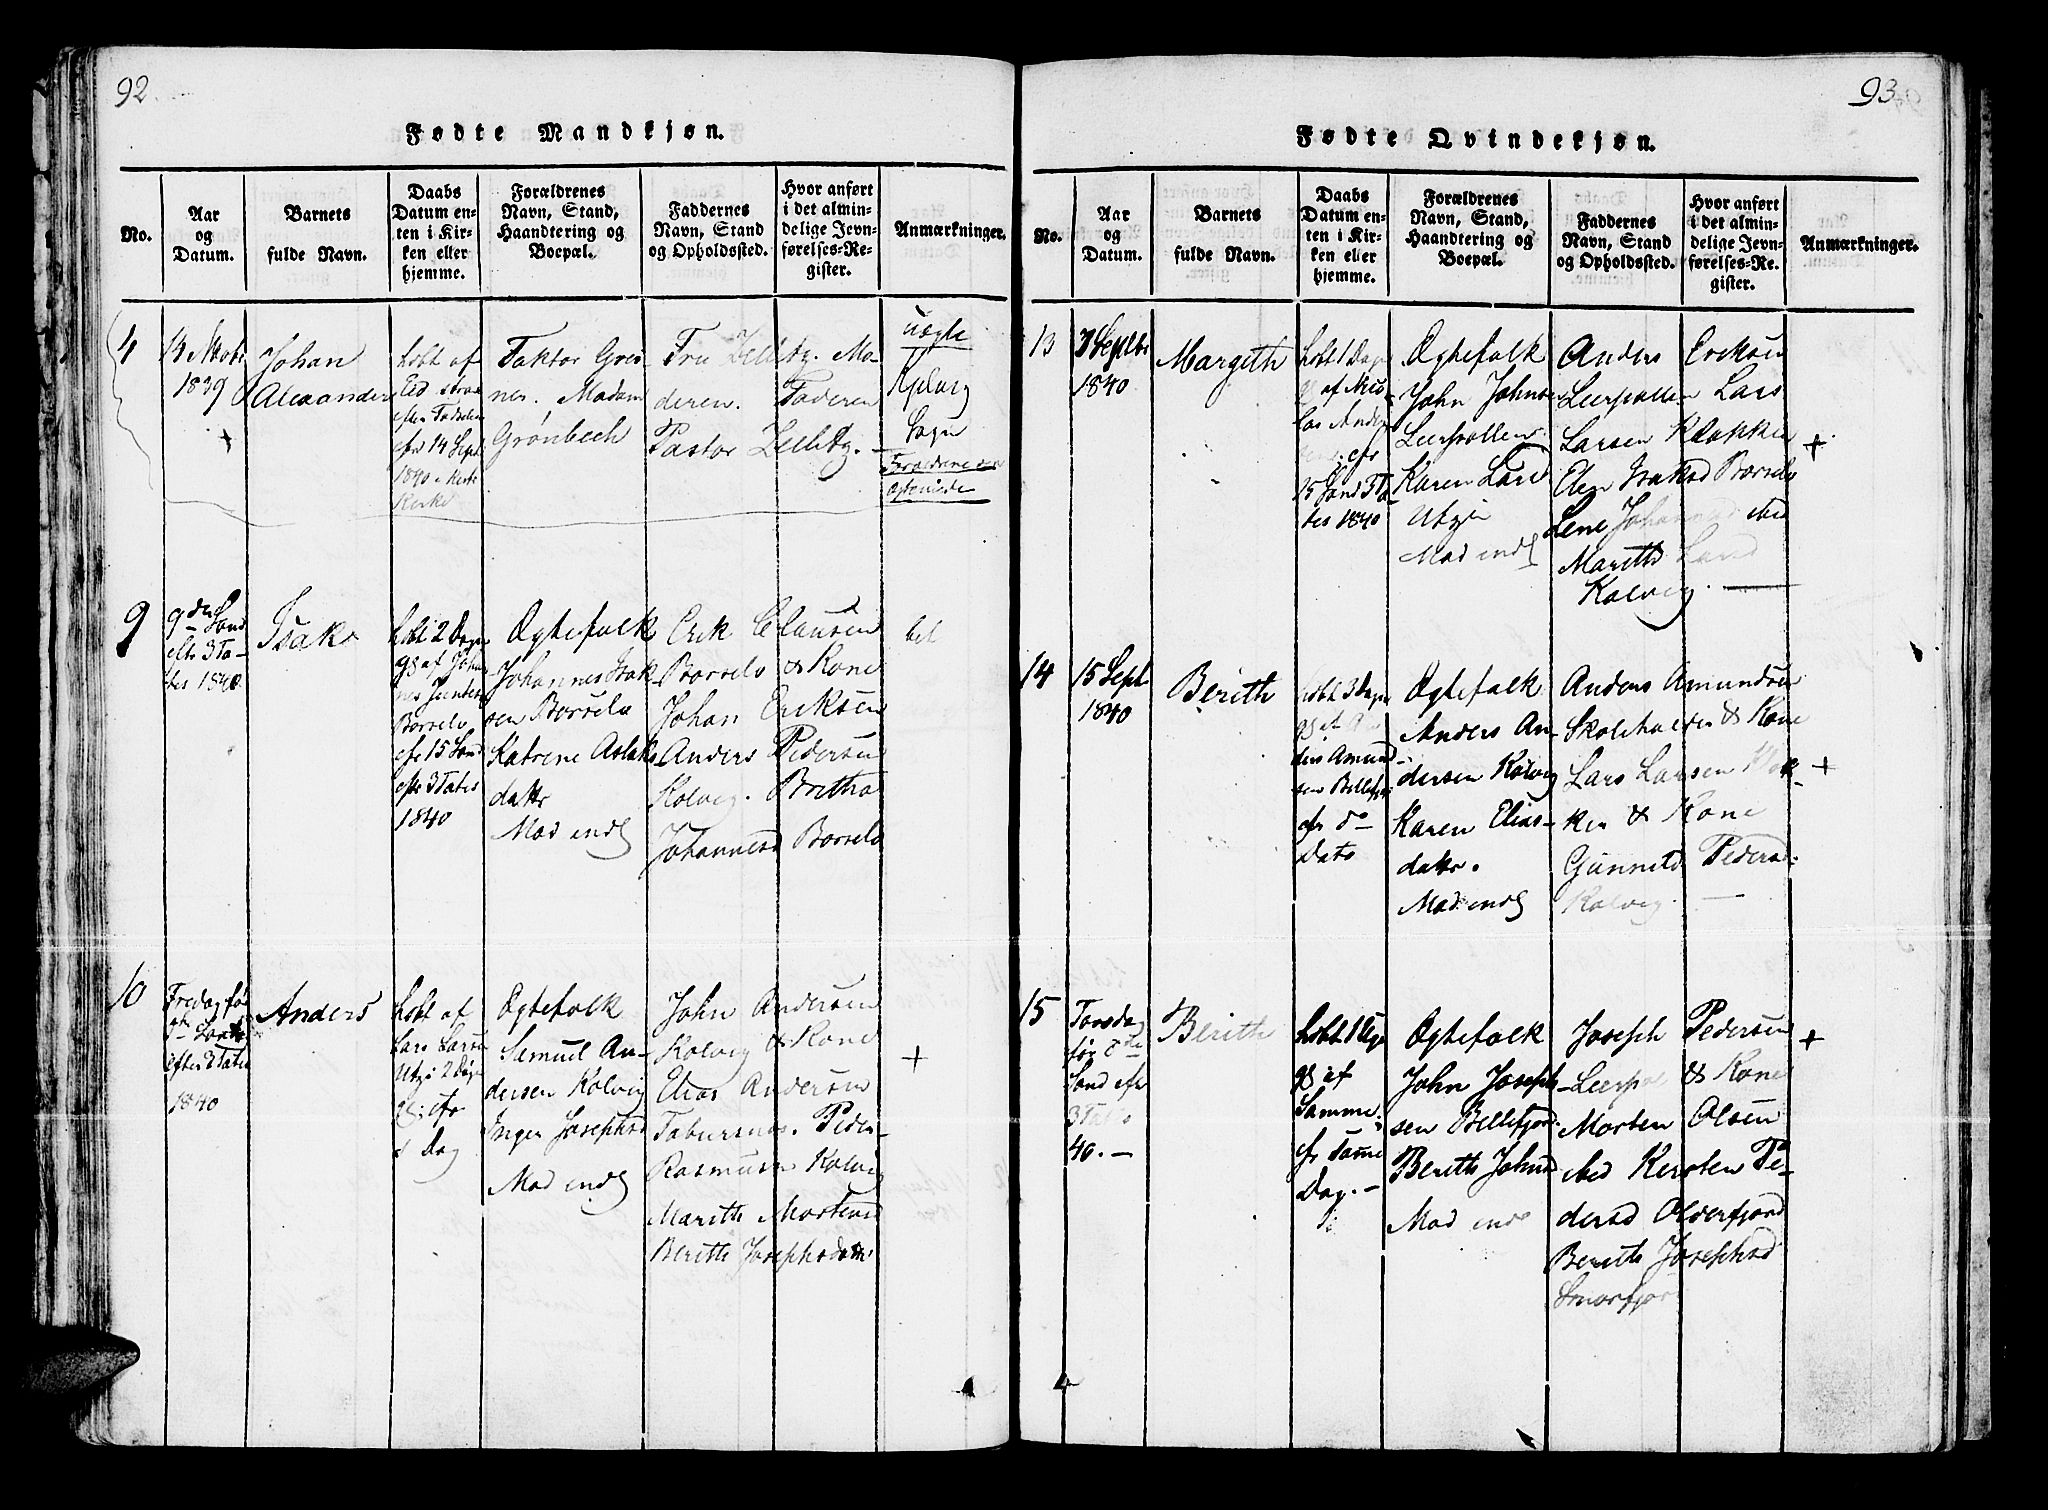 92.
Fødte Mandkjøn.
No.
Aar
og
Datum.
Barnets
fulde Navn.
Daabs
Datum en-
ten i Kir-
ken eller
hjemme.
Forældrenes
Navn, Stand,
Haandtering og
Boepæl.
Faddernes
Navn, Stand
og Opholdssted.
Hvor anført
i det almin-
delige Jevn-
førelses-Re-
gister.
Anmærkninger.
4
1839
+
Johan
Alexander
hdbt af
efter Fødselen
efr 14 Sept
1840
Kirke
Faktor
Madam
Grønbech
Fru Zetlitz. Mo-
deren. Faderen
Pastor Zetlitz.
uægte
Sogn
Forældrene
9
9de Sønd
eftr 3 Ta-
tes 1840.
Isak
hdbt 2 Dage
g af Johan-
nes
Borselv
efr 15 Sønd
eftr 3 Tatis
1840
Ægtefolk
Johannes Isak-
sen Borselv
Katrine Aslaks-
dattr
Mod indl
Erik Clausen
Borselv & Kone
Johan Eriksen
Anders Pedersen
Kolvig. Britha
Johannesd Borselv
10
Fredag før
efter 3 Tatis
1840
Anders
hdbt af
Lars Larsen
2 Dage
g: efr
s Dag
Ægtefolk
Samuel An-
dersen Kolvig
Inger Josephsd
Mod indl
John Andersen
Kolvig & Kone
Elias Andersen
Peder
Rasmusen Kolvig
Marith Mortensd
Berith Josephsdattr
+
93
Fødte Qvindekjøn.
No.
Aar
og
Datum.
Barnets
fulde Navn.
Daabs
Datum en-
ten i Kir-
ken eller
hjemme.
Forældrenes
Navn, Stand,
Haandtering og
Boepæl.
Faddernes
Navn, Stand
og Opholdssted.
Hvor anført
i det almin-
delige Jevn-
førelses-Re-
gister.
Anmærkninger.
13
Septbr
1840
Margith
hdbt 1 Dag
g af
efr
15 Sønd 3 Ta-
tes 1840
Ægtefolk
John Johnsen
Leerpollen
Karen Larsd
Mod indl
Anders Eriksen
Leerpollen Lars
Larsen Klokker
Elen Isaksd Borselv
Lene ibid
Marith
Kolvig
+
14
15 Sept
1840
Berith
hdbt 3 Dage
g af An-
ders Amund-
sen Billefjord
efr do
Dato
Ægtefolk
Anders An-
dersen Kolvig
Karen Elias-
dattr.
Mod indl
Anders Amundsen
Skoleholder & Kone
Lars Larsen Klok-
ker & Kone
Gunnild Pedersd
Kolvig
+
15
Torsdag
før 8de
Sønd efr
3 Tatis
40.
Berith
hdbt 1 Uge
g af
Samme
efr Samme
Dag.
Ægtefolk
John Joseph-
sen Billefjord
Berith Johnsd
Mod indl
Joseph Pedersen
Leerpol & Kone
Morten Olsen
ibid Kersten Pe-
dersd Olderfjord
Berith Josephsd
Smørfjord
+